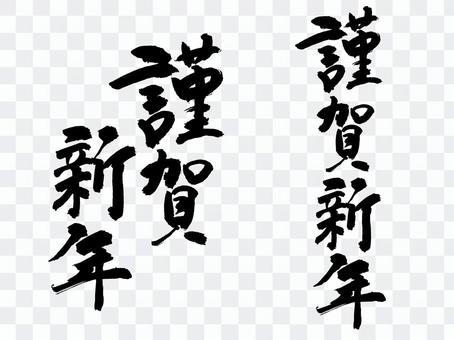 謹賀
新年
謹賀新年